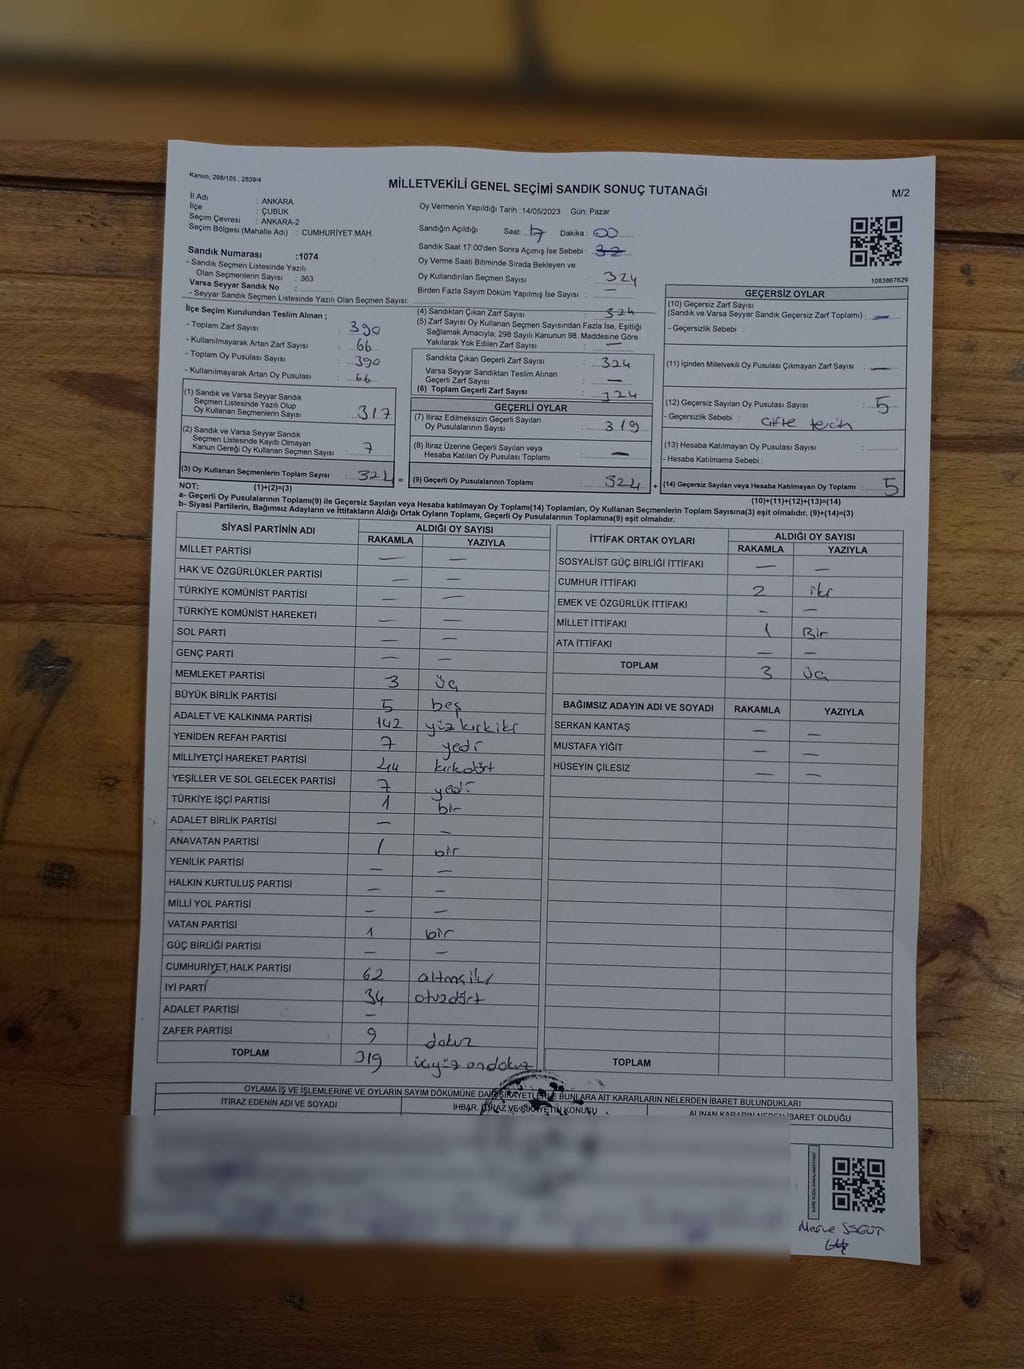 Kanun, 298/105 , 2839/4
MİLLETVEKİLİ GENEL SEÇİMİ SANDIK SONUÇ TUTANAĞI
M/2
İl Adı : ANKARA
İlçe : ÇUBUK
Seçim Çevresi : ANKARA-2
Seçim Bölgesi (Mahalle Adı) : CUMHURİYET MAH.
Oy Vermenin Yapıldığı Tarih :14/05/2023 Gün: Pazar
Sandığın Açıldığı Saat: 17 Dakika : 00
Sandık Saat 17:00'den Sonra Açımış İse Sebebi :
Oy Verme Saati Bitiminde Sırada Bekleyen ve
Oy Kullandırılan Seçmen Sayısı : 324
Birden Fazla Sayım Döküm Yapılmış İse Sayısı : —
1083867629
Sandık Numarası :1074
- Sandık Seçmen Listesinde Yazılı
Olan Seçmenlerin Sayısı : 363
Varsa Seyyar Sandık No :
- Seyyar Sandık Seçmen Listesinde Yazılı Olan Seçmen Sayısı:
İlçe Seçim Kurulundan Teslim Alınan ;
- Toplam Zarf Sayısı : 390
- Kullanılmayarak Artan Zarf Sayısı : 66
- Toplam Oy Pusulası Sayısı : 390
- Kullanılmayarak Artan Oy Pusulası : 66
(1) Sandık ve Varsa Seyyar Sandık
Seçmen Listesinde Yazılı Olup
Oy Kullanan Seçmenlerin Sayısı : 317
(2) Sandık ve Varsa Seyyar Sandık
Seçmen Listesinde Kayıtlı Olmayan
Kanun Gereği Oy Kullanan Seçmen Sayısı : 7
(3) Oy Kullanan Seçmenlerin Toplam Sayısı : 324 =
(1)+(2)=(3)
(4) Sandıktan Çıkan Zarf Sayısı : 324
(5) Zarf Sayısı Oy Kullanan Seçmen Sayısından Fazla İse, Eşitliği
Sağlamak Amacıyla; 298 Sayılı Kanunun 98. Maddesine Göre
Yakılarak Yok Edilen Zarf Sayısı : —
Sandıkta Çıkan Geçerli Zarf Sayısı : 324
Varsa Seyyar Sandıktan Teslim Alınan
Geçerli Zarf Sayısı : —
(6) Toplam Geçerli Zarf Sayısı : 324
GEÇERLİ OYLAR
(7) İtiraz Edilmeksizin Geçerli Sayılan
Oy Pusulalarının Sayısı : 319
(8) İtiraz Üzerine Geçerli Sayılan veya
Hesaba Katılan Oy Pusulası Toplamı : —
(9) Geçerli Oy Pusulalarının Toplamı : 324 +
GEÇERSİZ OYLAR
(10) Geçersiz Zarf Sayısı
(Sandık ve Varsa Seyyar Sandık Geçersiz Zarf Toplamı) : —
- Geçersizlik Sebebi :
(11) İçinden Milletvekili Oy Pusulası Çıkmayan Zarf Sayısı : —
(12) Geçersiz Sayılan Oy Pusulası Sayısı : 5
- Geçersizlik Sebebi : Çifte tercih
(13) Hesaba Katılmayan Oy Pusulası Sayısı :
- Hesaba Katılmama Sebebi :
(14) Geçersiz Sayılan veya Hesaba Katılmayan Oy Toplamı : 5
(10)+(11)+(12)+(13)=(14)
NOT:
a- Geçerli Oy Pusulalarının Toplamı(9) ile Geçersiz Sayılan veya Hesaba Katılmayan Oy Toplamı(14) Toplamları, Oy Kullanan Seçmenlerin Toplam Sayısına(3) eşit olmalıdır. (9)+(14)=(3)
b- Siyasi Partilerin, Bağımsız Adayların ve İttifakların Aldığı Ortak Oyların Toplamı, Geçerli Oy Pusulalarının Toplamına(9) eşit olmalıdır.
SİYASİ PARTİNİN ADI ALDIĞI OY SAYISI
RAKAMLA YAZIYLA
MİLLET PARTİSİ — —
HAK VE ÖZGÜRLÜKLER PARTİSİ — —
TÜRKİYE KOMÜNİST PARTİSİ — —
TÜRKİYE KOMÜNİST HAREKETİ — —
SOL PARTİ — —
GENÇ PARTİ — —
MEMLEKET PARTİSİ 3 üç
BÜYÜK BİRLİK PARTİSİ 5 beş
ADALET VE KALKINMA PARTİSİ 142 yüzkırkiki
YENİDEN REFAH PARTİSİ 7 yedi
MİLLİYETÇİ HAREKET PARTİSİ 44 kırkdört
YEŞİLLER VE SOL GELECEK PARTİSİ 7 yedi
TÜRKİYE İŞÇİ PARTİSİ 1 bir
ADALET BİRLİK PARTİSİ — —
ANAVATAN PARTİSİ 1 bir
YENİLİK PARTİSİ — —
HALKIN KURTULUŞ PARTİSİ — —
MİLLİ YOL PARTİSİ — —
VATAN PARTİSİ 1 bir
GÜÇ BİRLİĞİ PARTİSİ — —
CUMHURİYET HALK PARTİSİ 62 altmışiki
İYİ PARTİ 34 otuzdört
ADALET PARTİSİ —
ZAFER PARTİSİ 9 dokuz
TOPLAM 319 üçyüzondokuz
İTTİFAK ORTAK OYLARI ALDIĞI OY SAYISI
RAKAMLA YAZIYLA
SOSYALİST GÜÇ BİRLİĞİ İTTİFAKI — —
CUMHUR İTTİFAKI 2 iki
EMEK VE ÖZGÜRLÜK İTTİFAKI — —
MİLLET İTTİFAKI 1 Bir
ATA İTTİFAKI — —
TOPLAM 3 üç
BAĞIMSIZ ADAYIN ADI VE SOYADI RAKAMLA YAZIYLA
SERKAN KANTAŞ — —
MUSTAFA YİĞİT — —
HÜSEYİN ÇİLESİZ — —
TOPLAM
OYLAMA İŞ VE İŞLEMLERİNE VE OYLARIN SAYIM DÖKÜMÜNE DAİR ŞİKAYETLERLE BUNLARA AİT KARARLARIN NELERDEN İBARET BULUNDUKLARI
İTİRAZ EDENİN ADI VE SOYADI İHBAR, İTİRAZ VE ŞİKAYETİN KONUSU ALINAN KARARIN NEDEN İBARET OLDUĞU
Merve